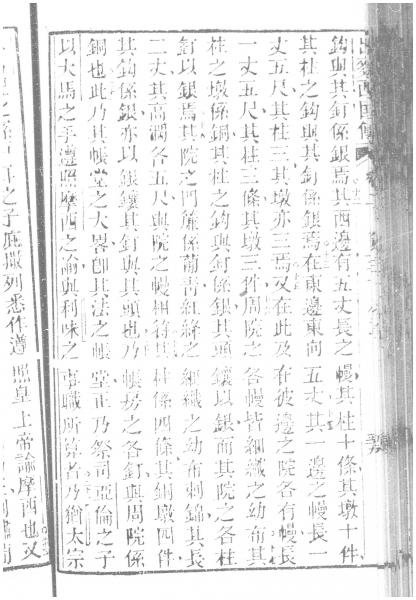 出麥西國傳
鈎與其釘係銀焉其西邊有五丈長之幔其柱十條其墩十件
其柱之鈎與其釘係銀焉在東邊東向五丈其一邊之幔長一
丈五尺其柱三其墩亦三焉又在此及在彼邊之院各有幔長
一丈五尺其柱三條其墩三件周院之各幔皆細織之幼布其
柱之墩係銅其柱之鈎與釘係銀其頭鑲以銀而其院之各柱
釘以銀焉其院之門簾係葡青紅絳之細織之幼布刺錦其長
二丈其高濶各五尺與院之幔相符其柱係四條其銅墩四件
其鈎係銀亦以銀鑲其釘與其頭也乃帳房之各釘與周院係
銅也此乃其帳堂之大畧即其法之帳堂正乃祭司亞倫之子
以大馬之手遵照摩西之諭與利味之事職所算者乃猶太宗
之子庇撒列悉作遵照皇上帝諭摩西也又